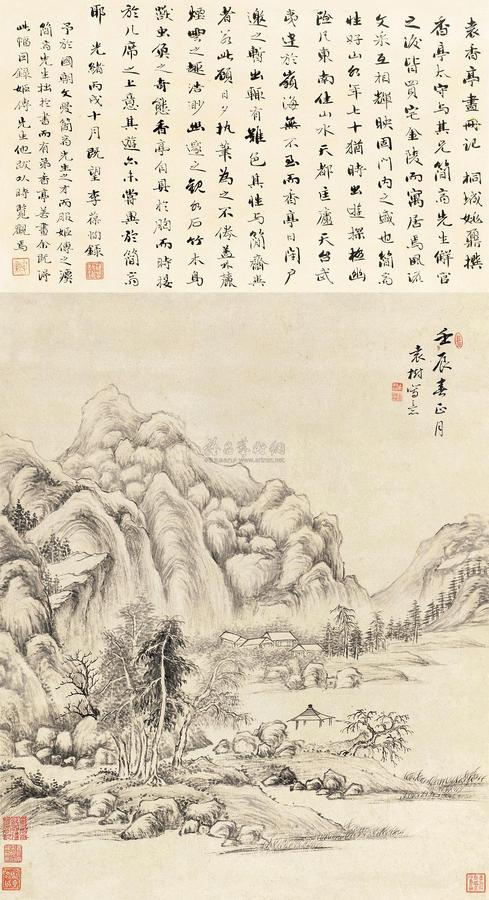 袁香亭畫冊記 桐城姚鼐撰
香亭太守與其兄簡齋先生解官
之後皆買宅金陵而寓居焉風流
文采互相輝映門內之盛也簡齋
性好山水年七十猶時出遊探極幽
險凡東南佳山水天都匡廬天台武
夷達於嶺海無不至而香亭日閉戶
邀之暫出輒有難色其性與簡齋異
者若此顧日夕執筆為之不倦蓋林麓
煙雲之趣浩渺幽邃之觀水石竹木鳥
獸蟲魚之奇態香亭具於胸而時接
於几席之上意其遊亦未嘗異於簡齋
耶 光緒丙戌十月既望李葆恂錄
予於國朝文愛簡齋先生之才而服姬傳之潔
簡齋先生拙於書而有弟香亭善畫余既得
此幅因錄姬傳先生他跋以時覽觀焉
壬辰春正月
袁樹寫意